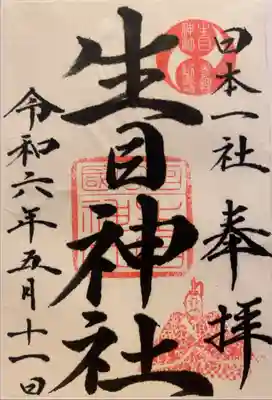 日本一社 奉拝
生目神社
令和六年五月十一日